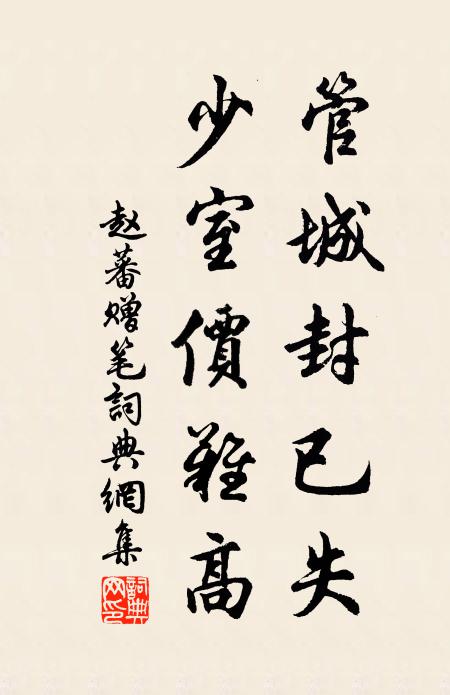 管城封已失
少室價難高
赵蕃赠笔詞典網集
詞典网印